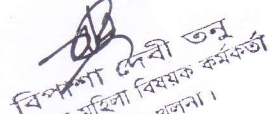 বিপাশা দেবী তনু
মহিলা বিষয়ক কর্মকর্তা
খুলনা।